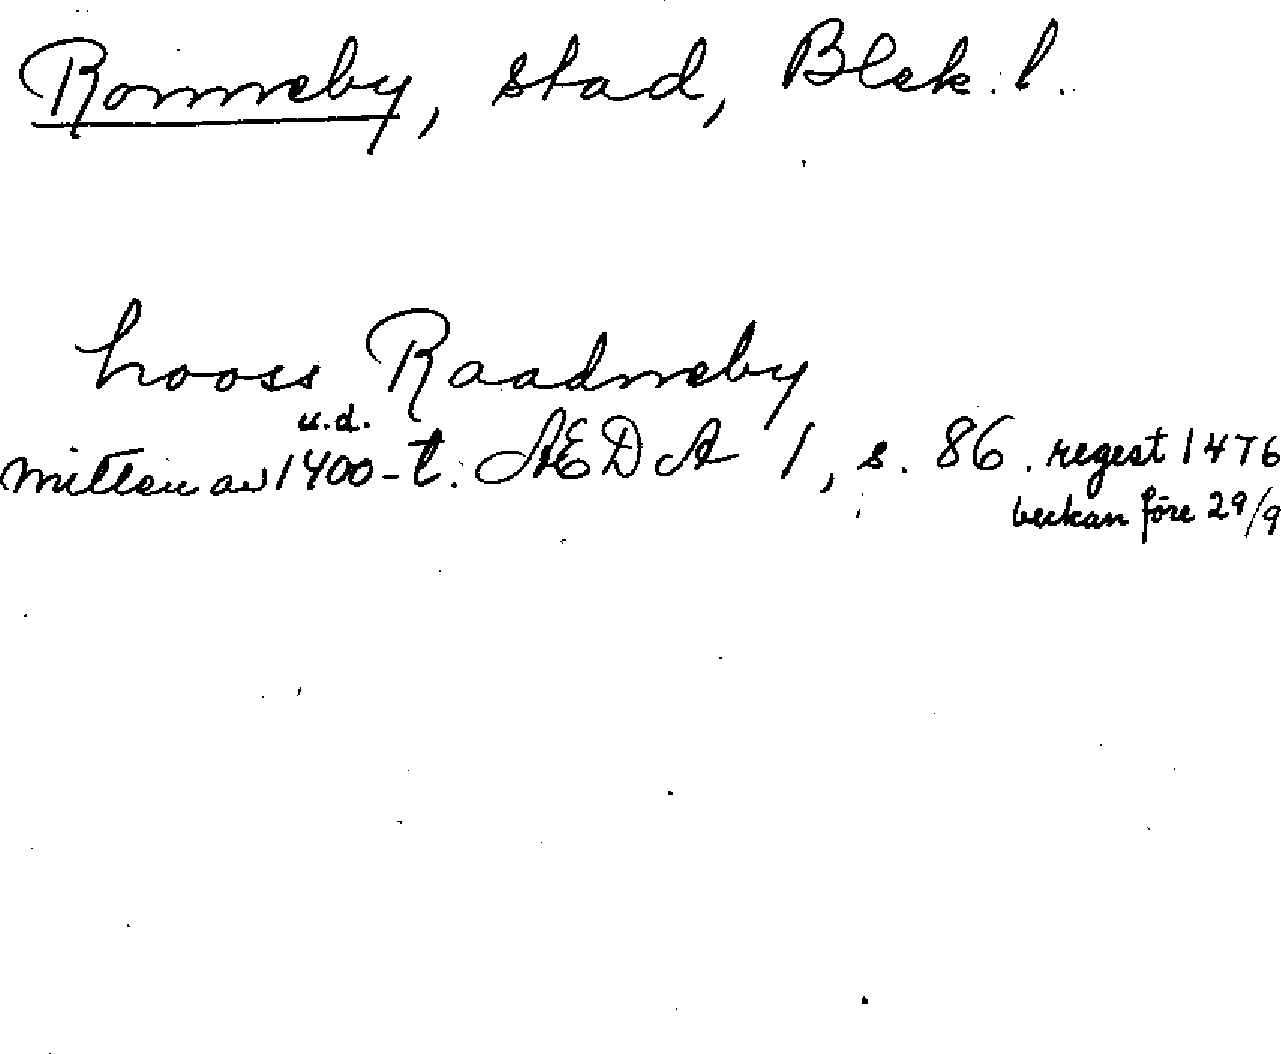 Ronneby, stad, Blek. l.
hooss Raadneby
u.d.
mitten av 1400-t. AEDA 1, s. 86. regest 1476
veckan före 29/9